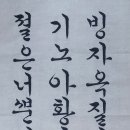 빙자옥질
기노아황
절은너뿐